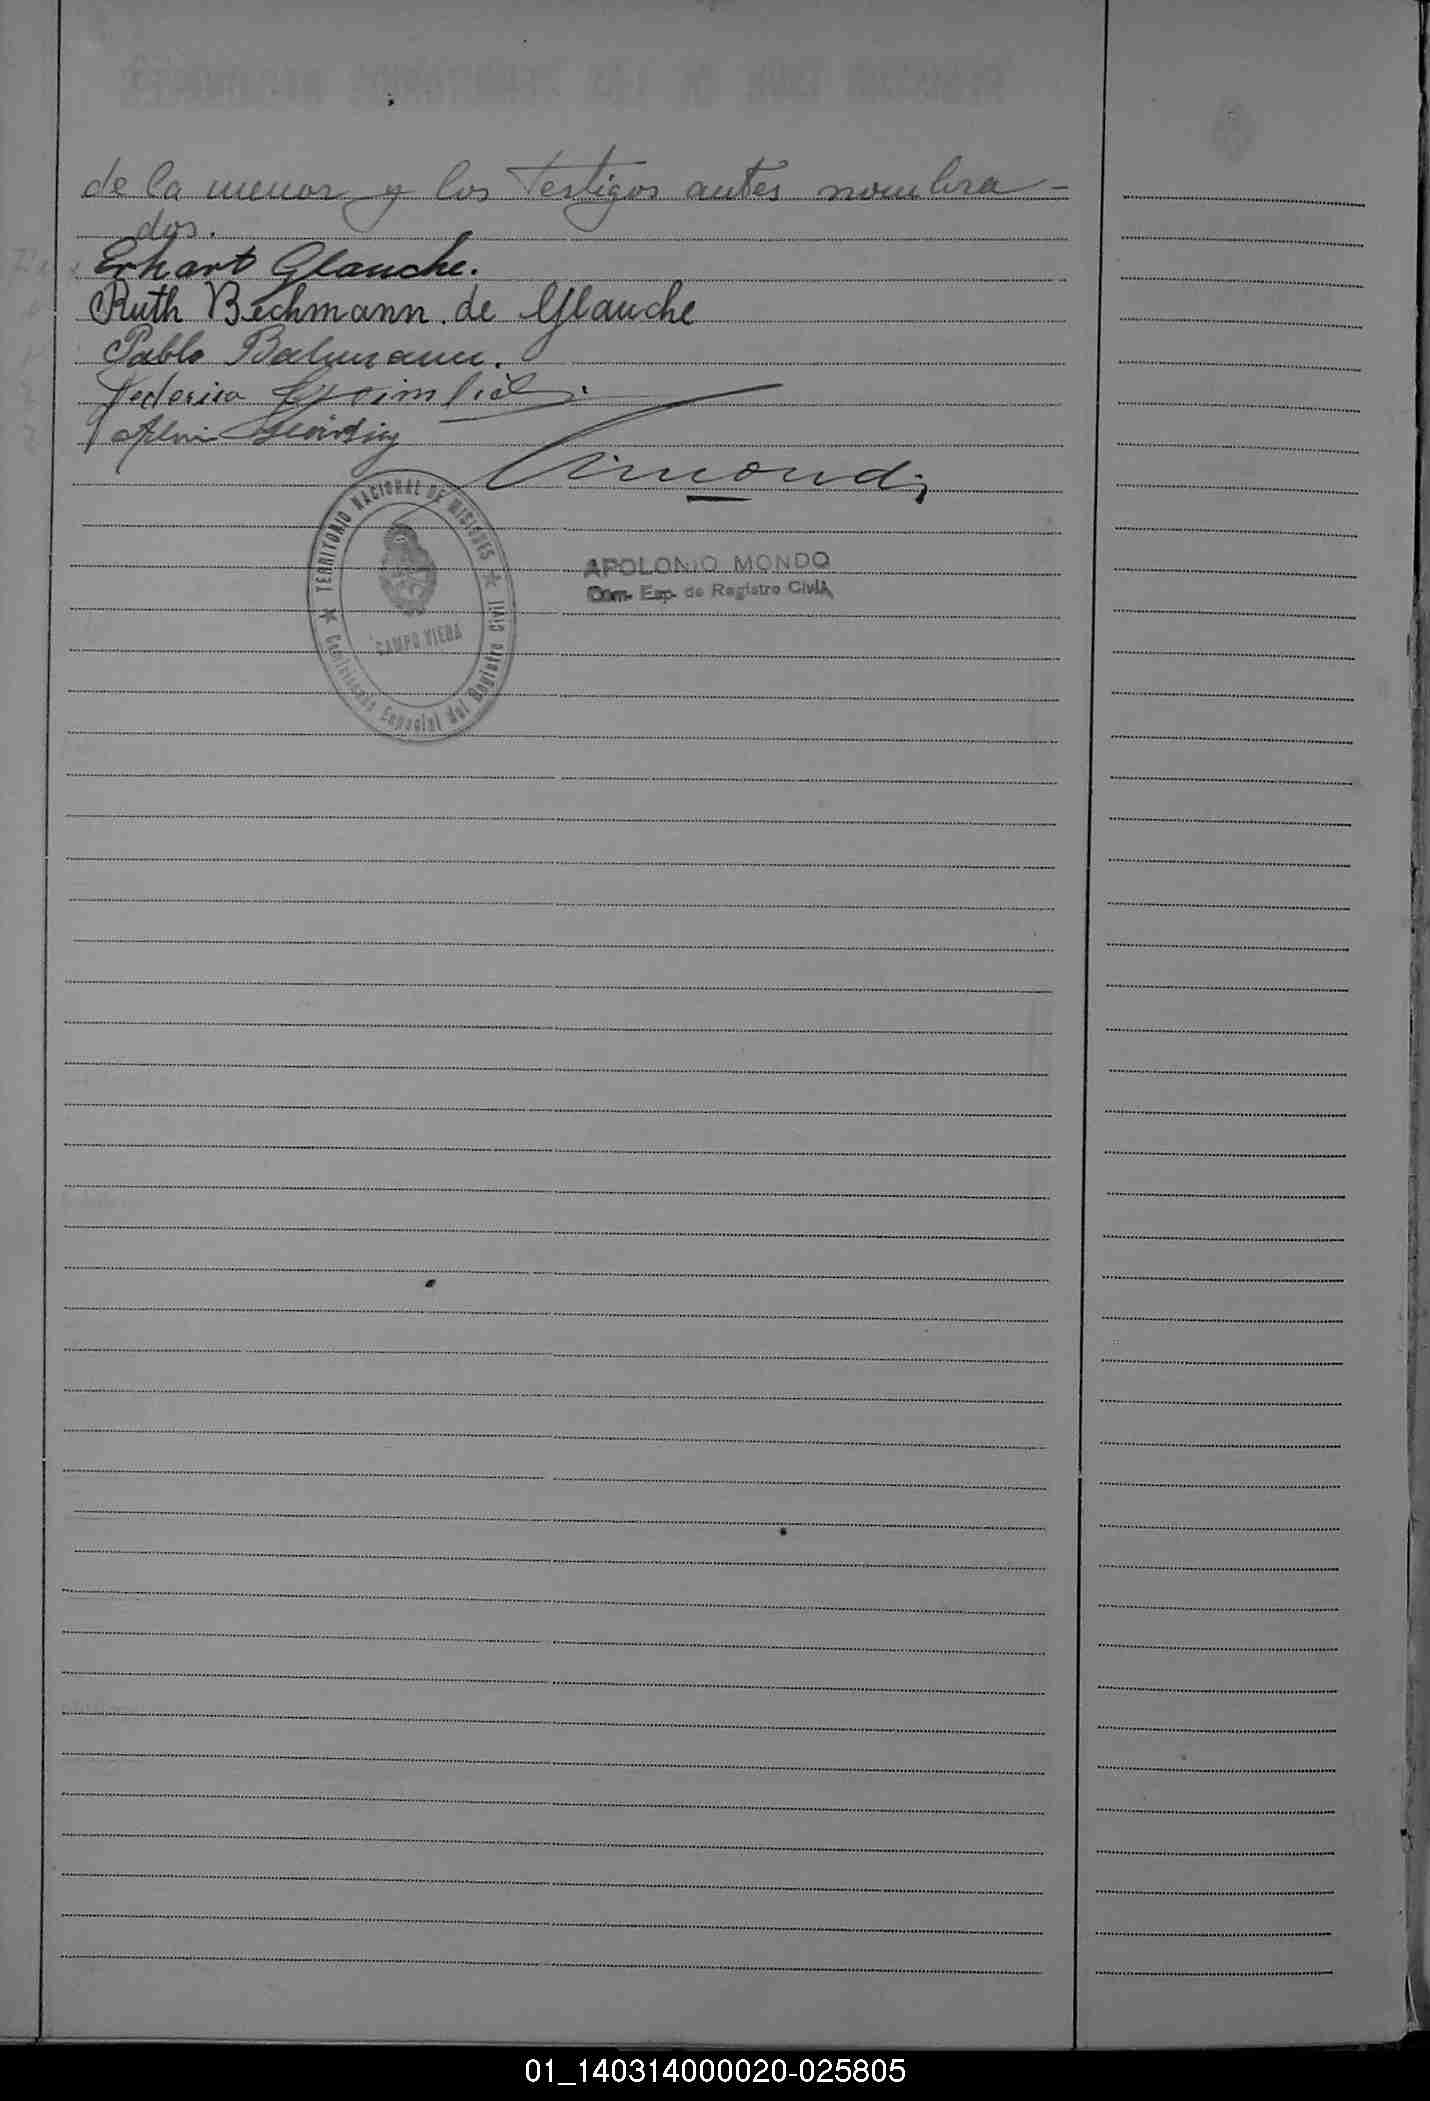 de la menor y los Testigos antes nombra-
dos.
Erhart Glauche.
Ruth Bechmann de Glauche
Pablo
Federico
TERRITORIO NACIONAL DE MISIONES
CAMPO VIERA
Comisionado Especial del Registro Civil
APOLONIO MONDO
Com. Esp. de Registro Civil
01_140314000020-025805